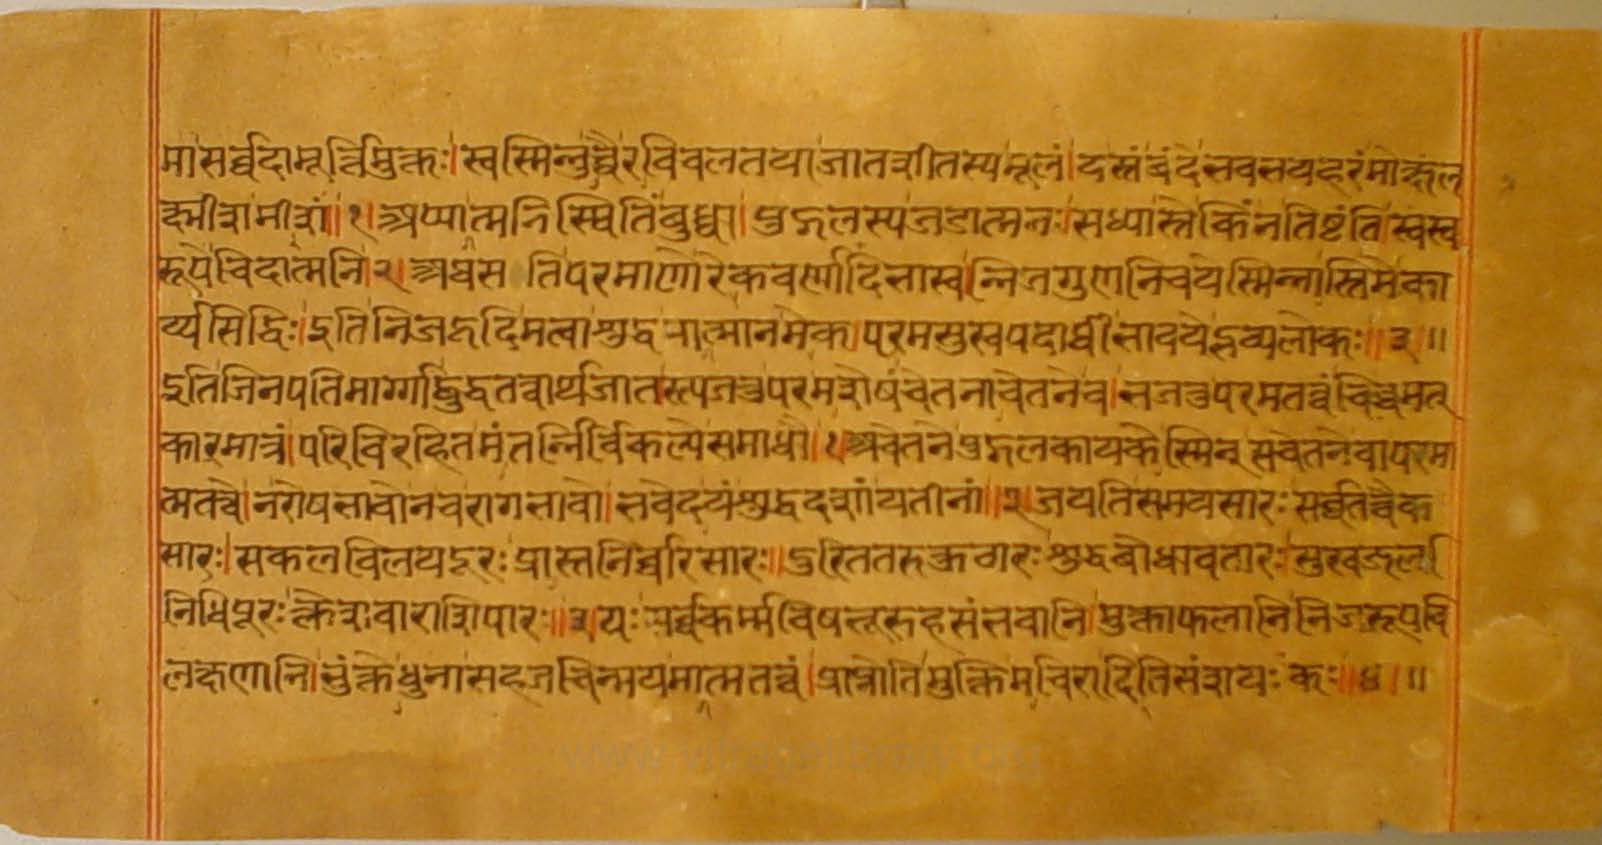 मा सर्व्वदामूर्न्निमुक्तः। स्वस्मिन्नुच्चैरविचलतया जातशीतस्य मूलं। दस्तं द्वंदे भवभयहरं मोक्षल
क्ष्मीशमीशं॥१॥ अप्यात्मनि स्थितिं बुध्वा। पुद्गलस्य जडात्मनः। सिध्यास्ते किं न तिष्टंति। स्वस्व
रूपे चिदात्मनि।२। अथ स ति परमाणोरेकवर्णादिभास्व। न्निजगुणनिचयेस्मिन्नास्ति मे का
र्य्यसिद्धिः। इति निजहृदि मत्वा शुद्धमात्मानमेकं। परमसुखपदार्थी भावयेद्भव्यलोकः॥३॥
इति जिनपतिमार्गाद्बुद्धतत्वार्थजातः। त्यजतु परमशेषं चेतनाचेतने च। भजतु परमतत्वं चिच्चमत्
कारमात्रं। परिविरहितमंतर्न्निर्विकल्पे समाधौ॥१॥ अचेतने पुद्गलकायकेस्मिन् सचेतने वा परमा
त्मतत्वे। न रोषभावो न च रागभावो। भवेदयं शुद्धदशा यतीनां॥२॥ जयति समयसारः सर्व्वतत्वैक
सारः। सकलविलयदूरः प्रास्तनिर्व्वारिसारः॥ दुरिततरुकुठारः शुद्धबोधावतारः। सुखजल
निधिपूरः क्लेशवाराशिपारः॥३॥ यः सर्व्वकर्म्मविषभूरुहसंभवानि। मुक्त्वा फलानि निजरूपवि
लक्षणानि। भुंक्तेधुना सहजचिन्मयमात्मतत्वं। प्राप्नोति मुक्तिमचिरादिति संशयः कः॥४॥
www.vitragelibrary.org